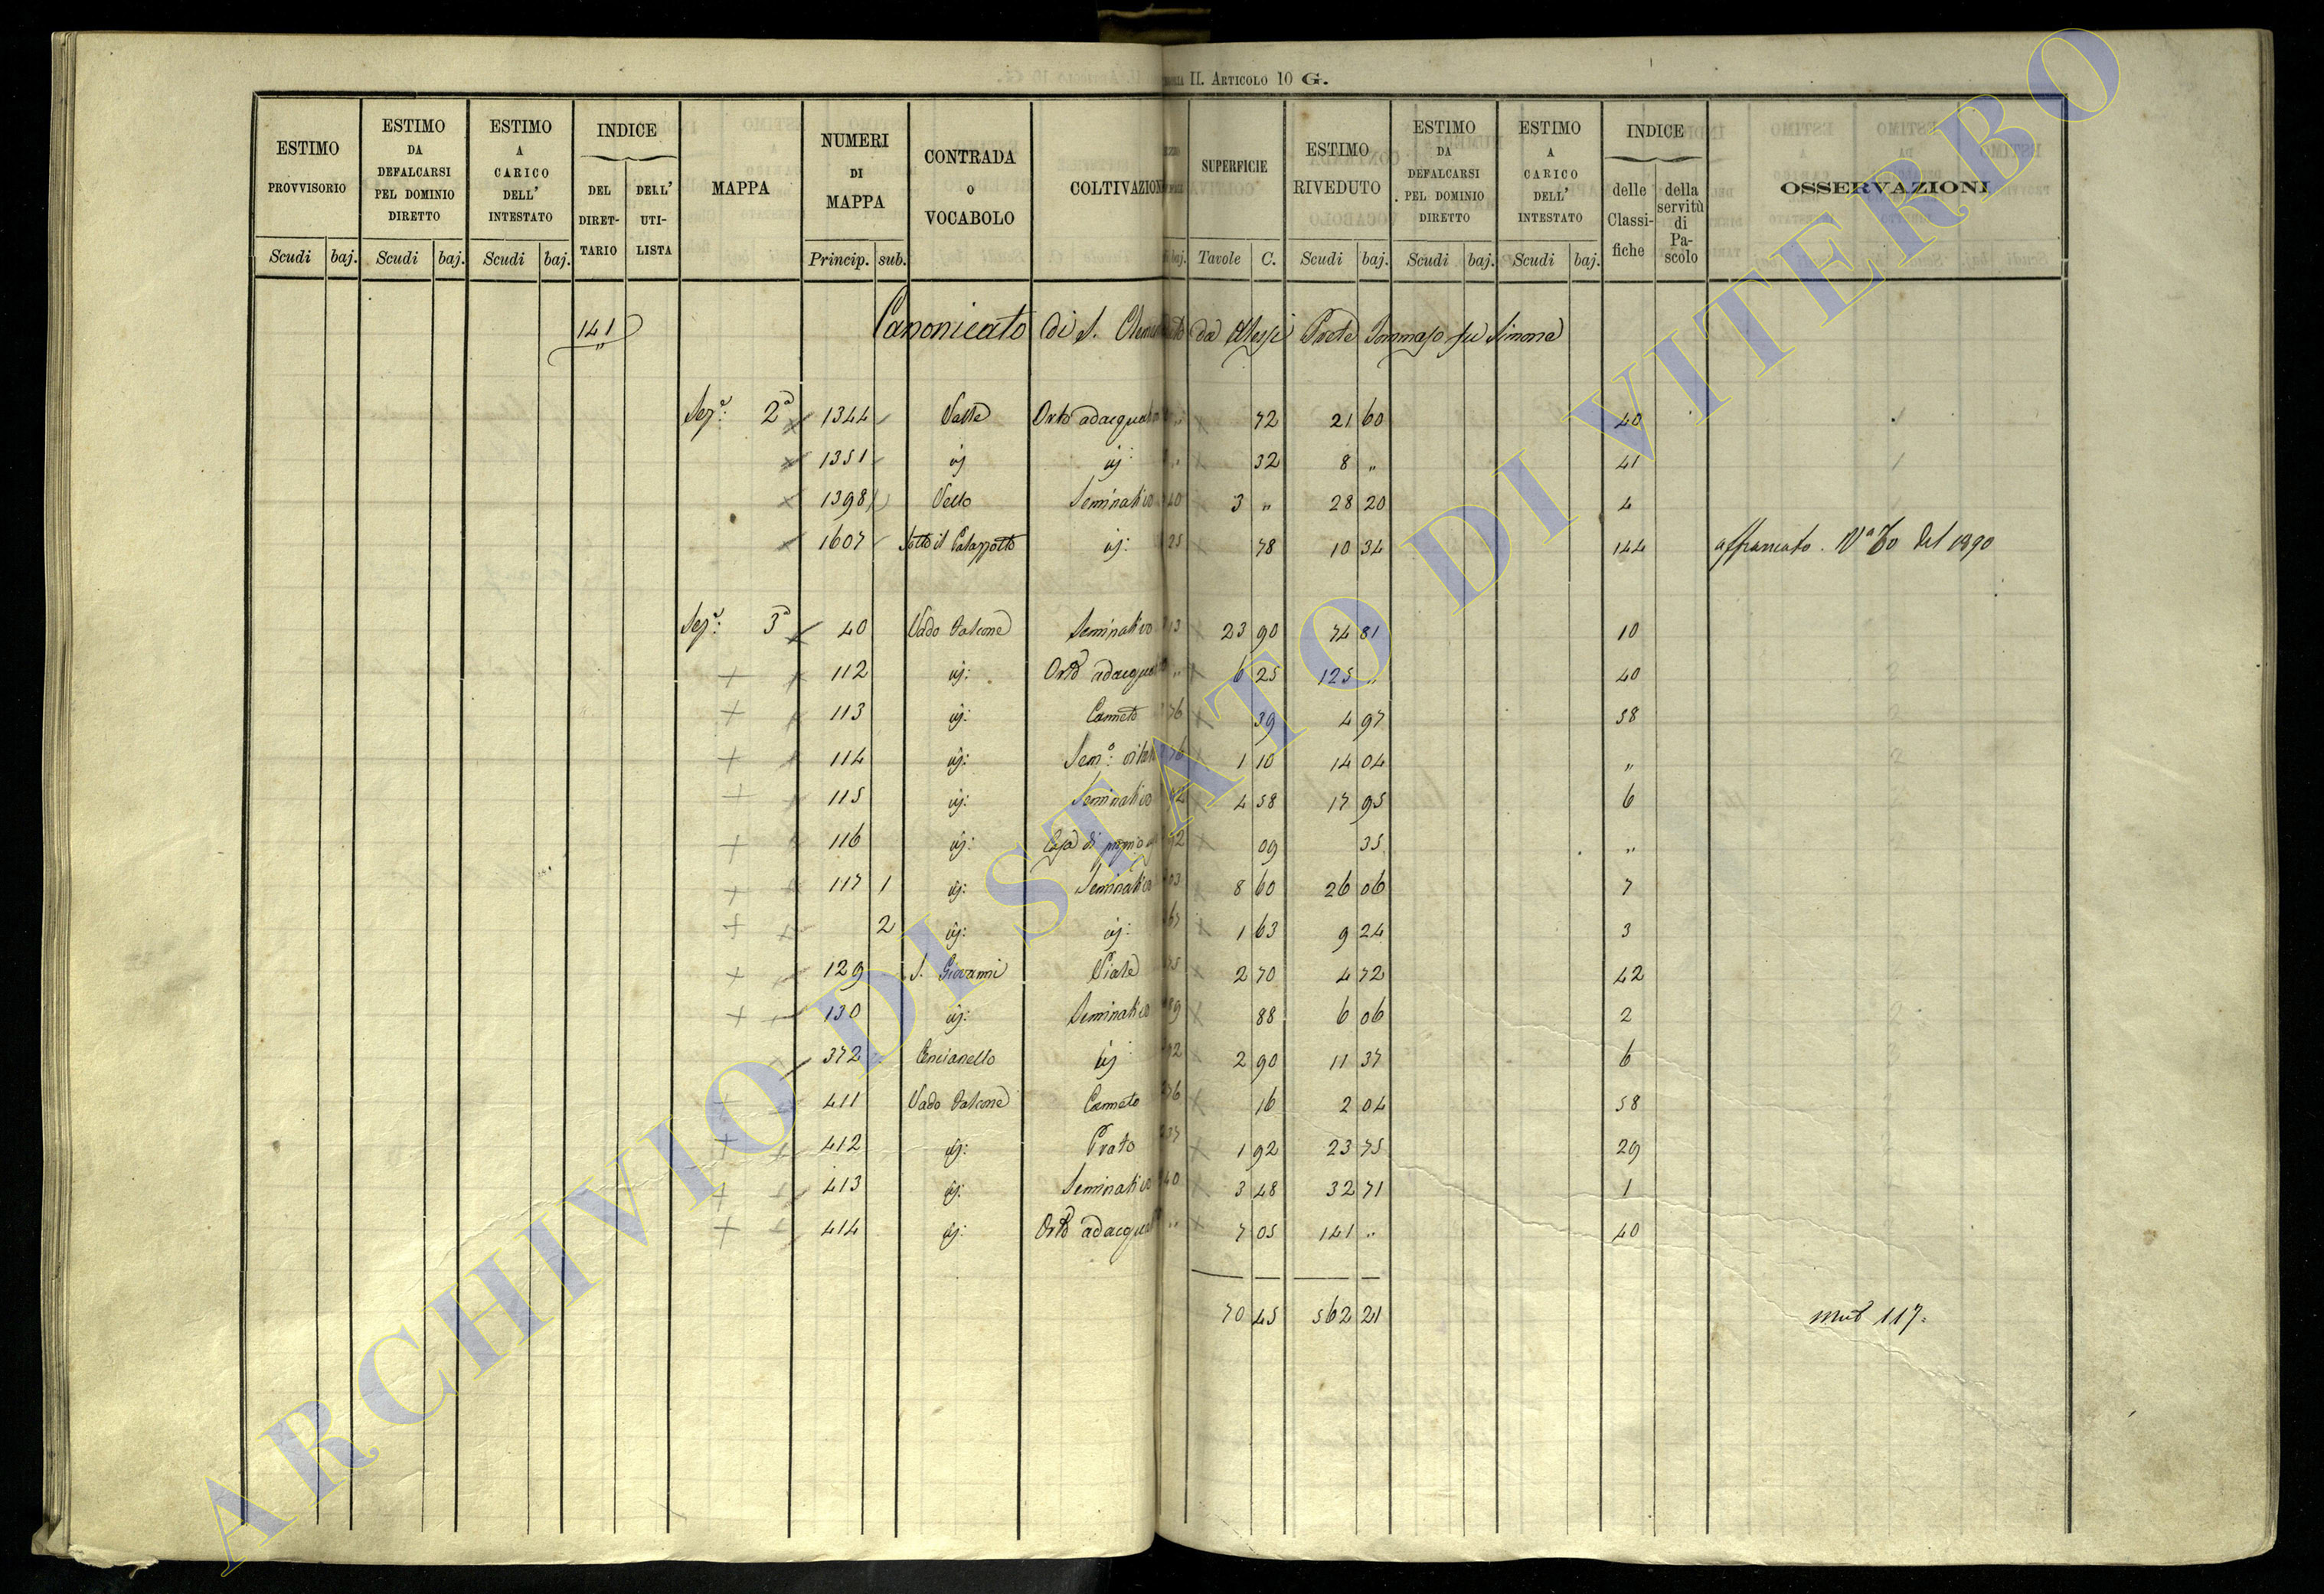 II. Articolo 10 G.
ESTIMO PROVVISORIO ESTIMO DA DEFALCARSI PEL DOMINIO DIRETTO ESTIMO A CARICO DELL' INTESTATO INDICE DEL DIRET-TARIO DELL' UTI-LISTA MAPPA NUMERI DI MAPPA CONTRADA O VOCABOLO COLTIVAZION SUPERFICIE ESTIMO RIVEDUTO ESTIMO DA DEFALCARSI PEL DOMINIO DIRETTO ESTIMO A CARICO DELL' INTESTATO INDICE delle Classi-fiche della servitù di Pa-scolo OSSERVAZIONI
Scudi baj. Scudi baj. Scudi baj. Princip. sub. baj. Tavole C. Scudi baj. Scudi baj. Scudi baj.
141 Canonicato di S. da Prete Tommaso fu Simone
Sez.e: 2a 1344 Valle Orto adacquat 72 21 60 40
1351 ij ij: 32 8 „ 41
1398 Vello Seminativo 40 3 „ 28 20 4
1607 Sotto il Palazzotto ij: 25 78 10 34 144 affrancato. Va 60 del 1890
Sez.e: 3a 40 Vado Falcone Seminativo 13 23 90 74 81 10
112 ij: Orto adacqua „ 6 25 125 „ 40
113 ij: Canneto 76 39 4 97 58
114 ij: Sem.o: vitat 76 1 10 14 04 „
115 ij: Seminativo 92 4 58 17 95 6
116 ij: Casa di propio 92 09 35 „
117 1 ij: Seminativo 03 8 60 26 06 7
2 ij: ij: 67 1 63 9 24 3
129 S. Giovanni Viate 75 2 70 4 72 42
130 ij: Seminativo 89 88 6 06 2
372 Cencianello ij 92 2 90 11 37 6
411 Vado Falcone Canneto 76 16 2 04 58
412 ij: Prato 37 1 92 23 75 29
413 ij: Seminativo 40 3 48 32 71 1
414 ij: Orto adacqua „ 7 05 141 „ 40
70 45 562 21 mut 117.
ARCHIVIO DI STATO DI VITERBO